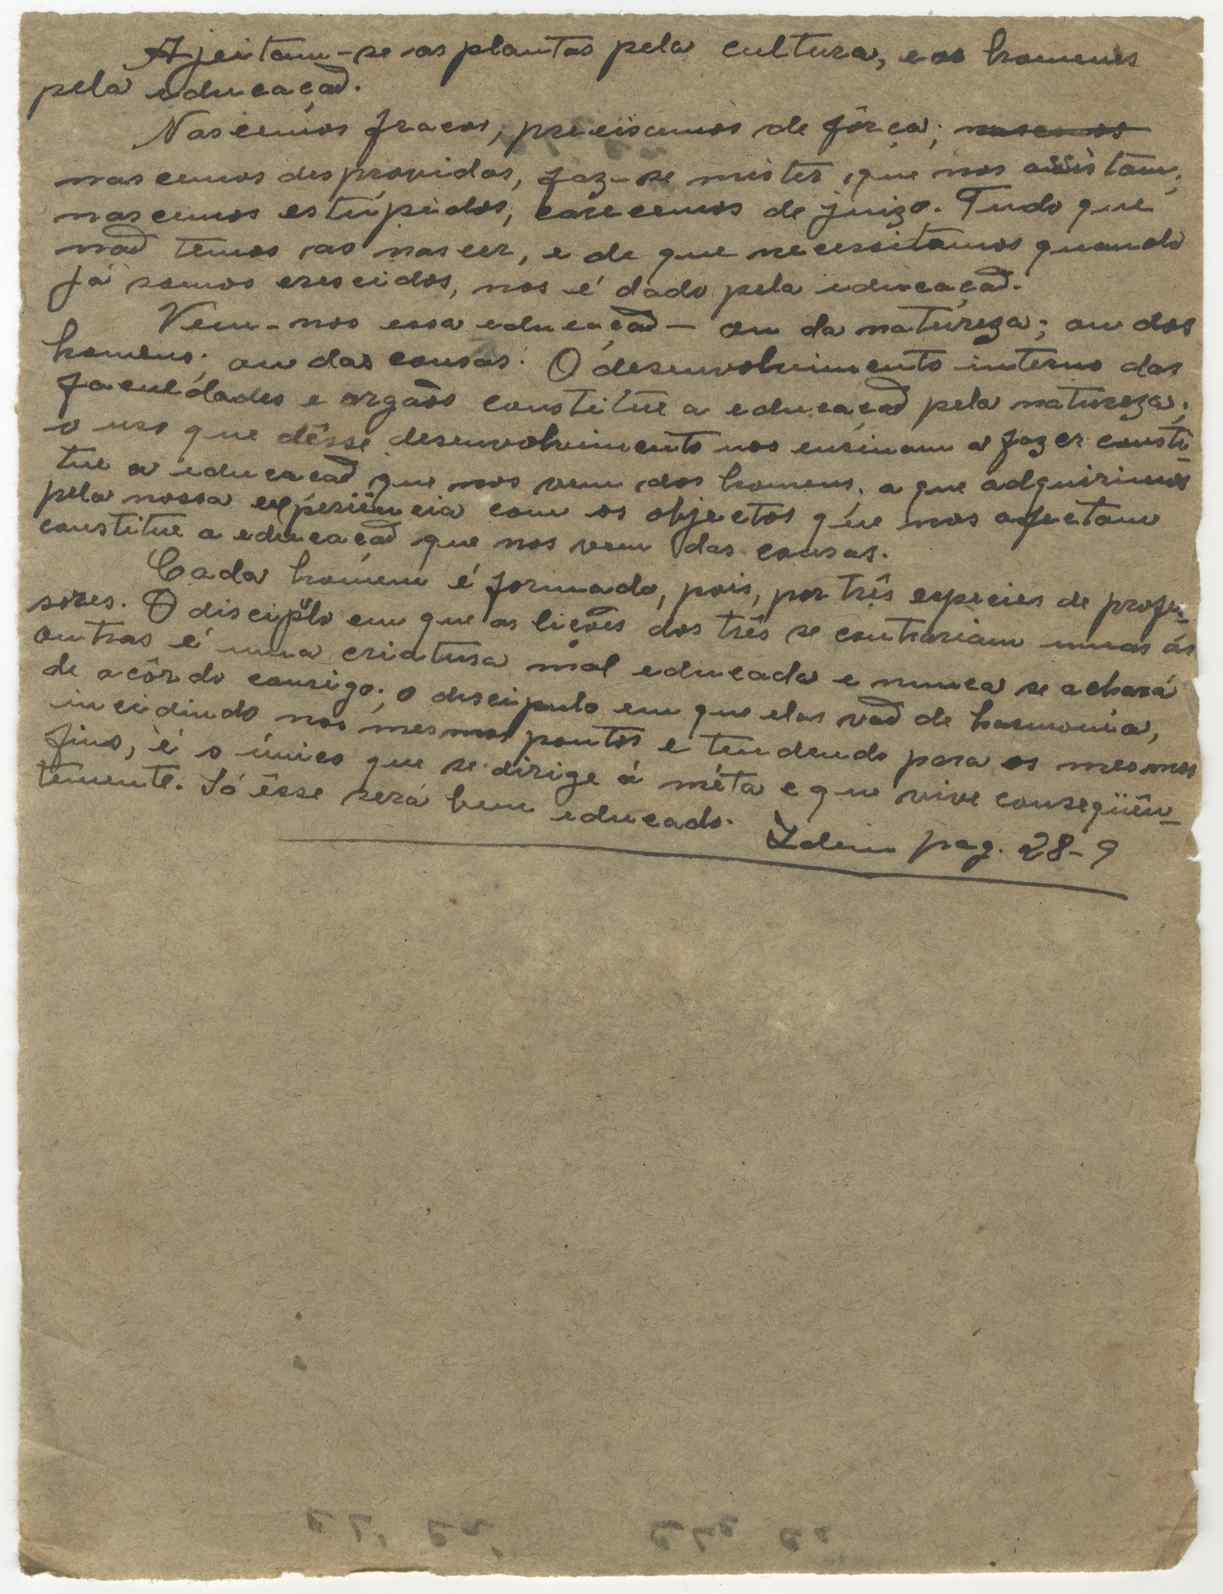 Ajeitam-se as plantas pela cultura, e os homens
pela educação.
Nascemos fracos, precisamos de fôrça; nascemos
nascemos desprovidos, faz-se mister que nos assistam;
nascemos estúpidos, carecemos de juizo. Tudo que
não temos ao nascer, e de que necessitamos quando
já somos crescidos, nos é dado pela educação.
Vem-nos essa educação — ou da natureza; ou dos
homens; ou das cousas. O desenvolvimento interno das
faculdades e orgãos constitue a educação pela natureza;
o uso que dêsse desenvolvimento nos ensinam a fazer consti-
tue a educação que nos vem dos homens; a que adquirimos
pela nossa experiência com os objectos que nos afectam
constitue a educação que nos vem das cousas.
Cada homem é formado, pois, por três especies de profes-
sores. O discipulo em que as lições dos três se contrariam umas ás
outras é uma criatura mal educada e nunca se achará
de acôrdo consigo; o discipulo em que elas vão de harmonia,
incidindo nos mesmos pontos e tendendo para os mesmos
fins, é o único que se dirige á méta e que vive conseqüên-
temente. Só êsse será bem educado.
Idem pag. 28-9